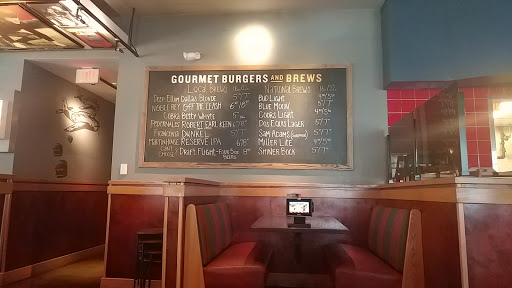 GOURMET BURGERS AND BREWS
LOCAL BREWS 16/22
DEEP ELLUM DALLAS BLONDE 5/7
NOBLE REY OFF THE LEASH 6/8
COBRA BETTY WHYTE
PEDERNALES ROBERT EARL KEEN
FRANCONIA DUNKEL 5/7
MARTIN HOUSE RESERVE IPA
CAN'T CHOOSE? DRAFT FLIGHT - FOUR 5oz BEERS
NATIONAL BREWS 16/22
BUD LIGHT
BLUE MOON 5/7
COORS LIGHT
DOS EQUIS LAGER 5/7
SAM ADAMS (SEASONAL) 5/7
MILLER LITE
SHINER BOCK 5/7
EXIT